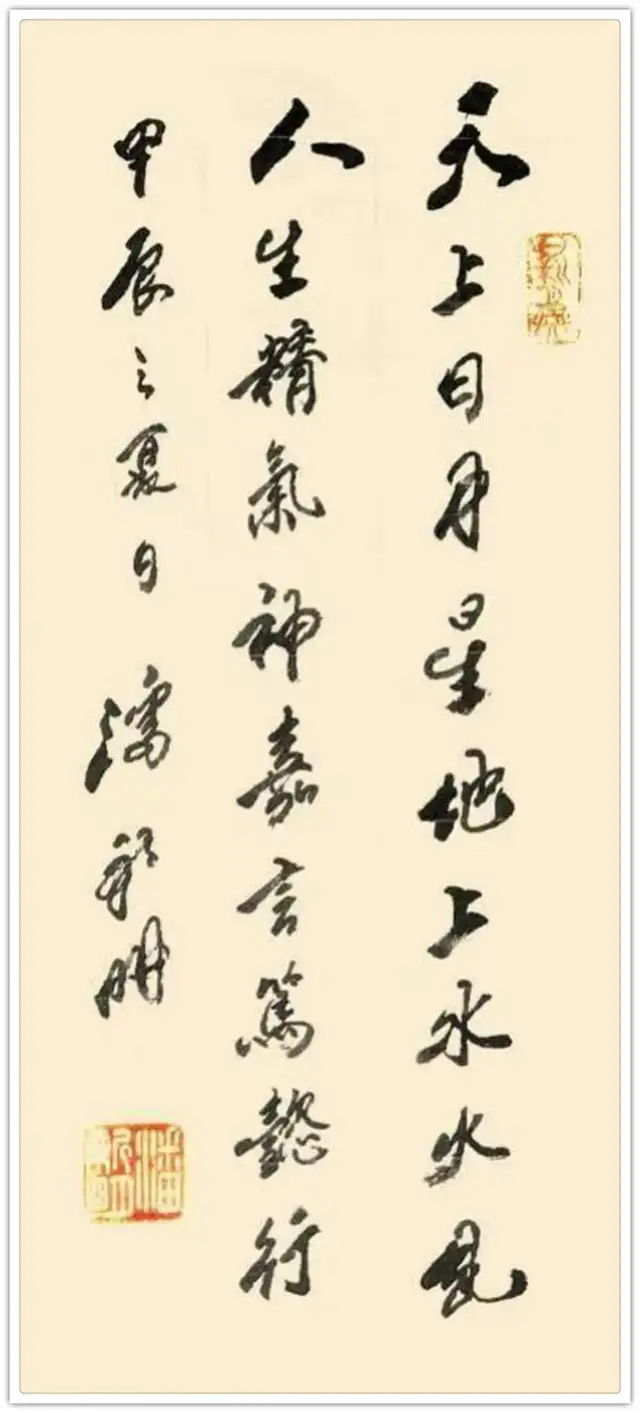 天上日月星地上水火風
人生精氣神嘉言篤懿行
甲辰之夏日 潘